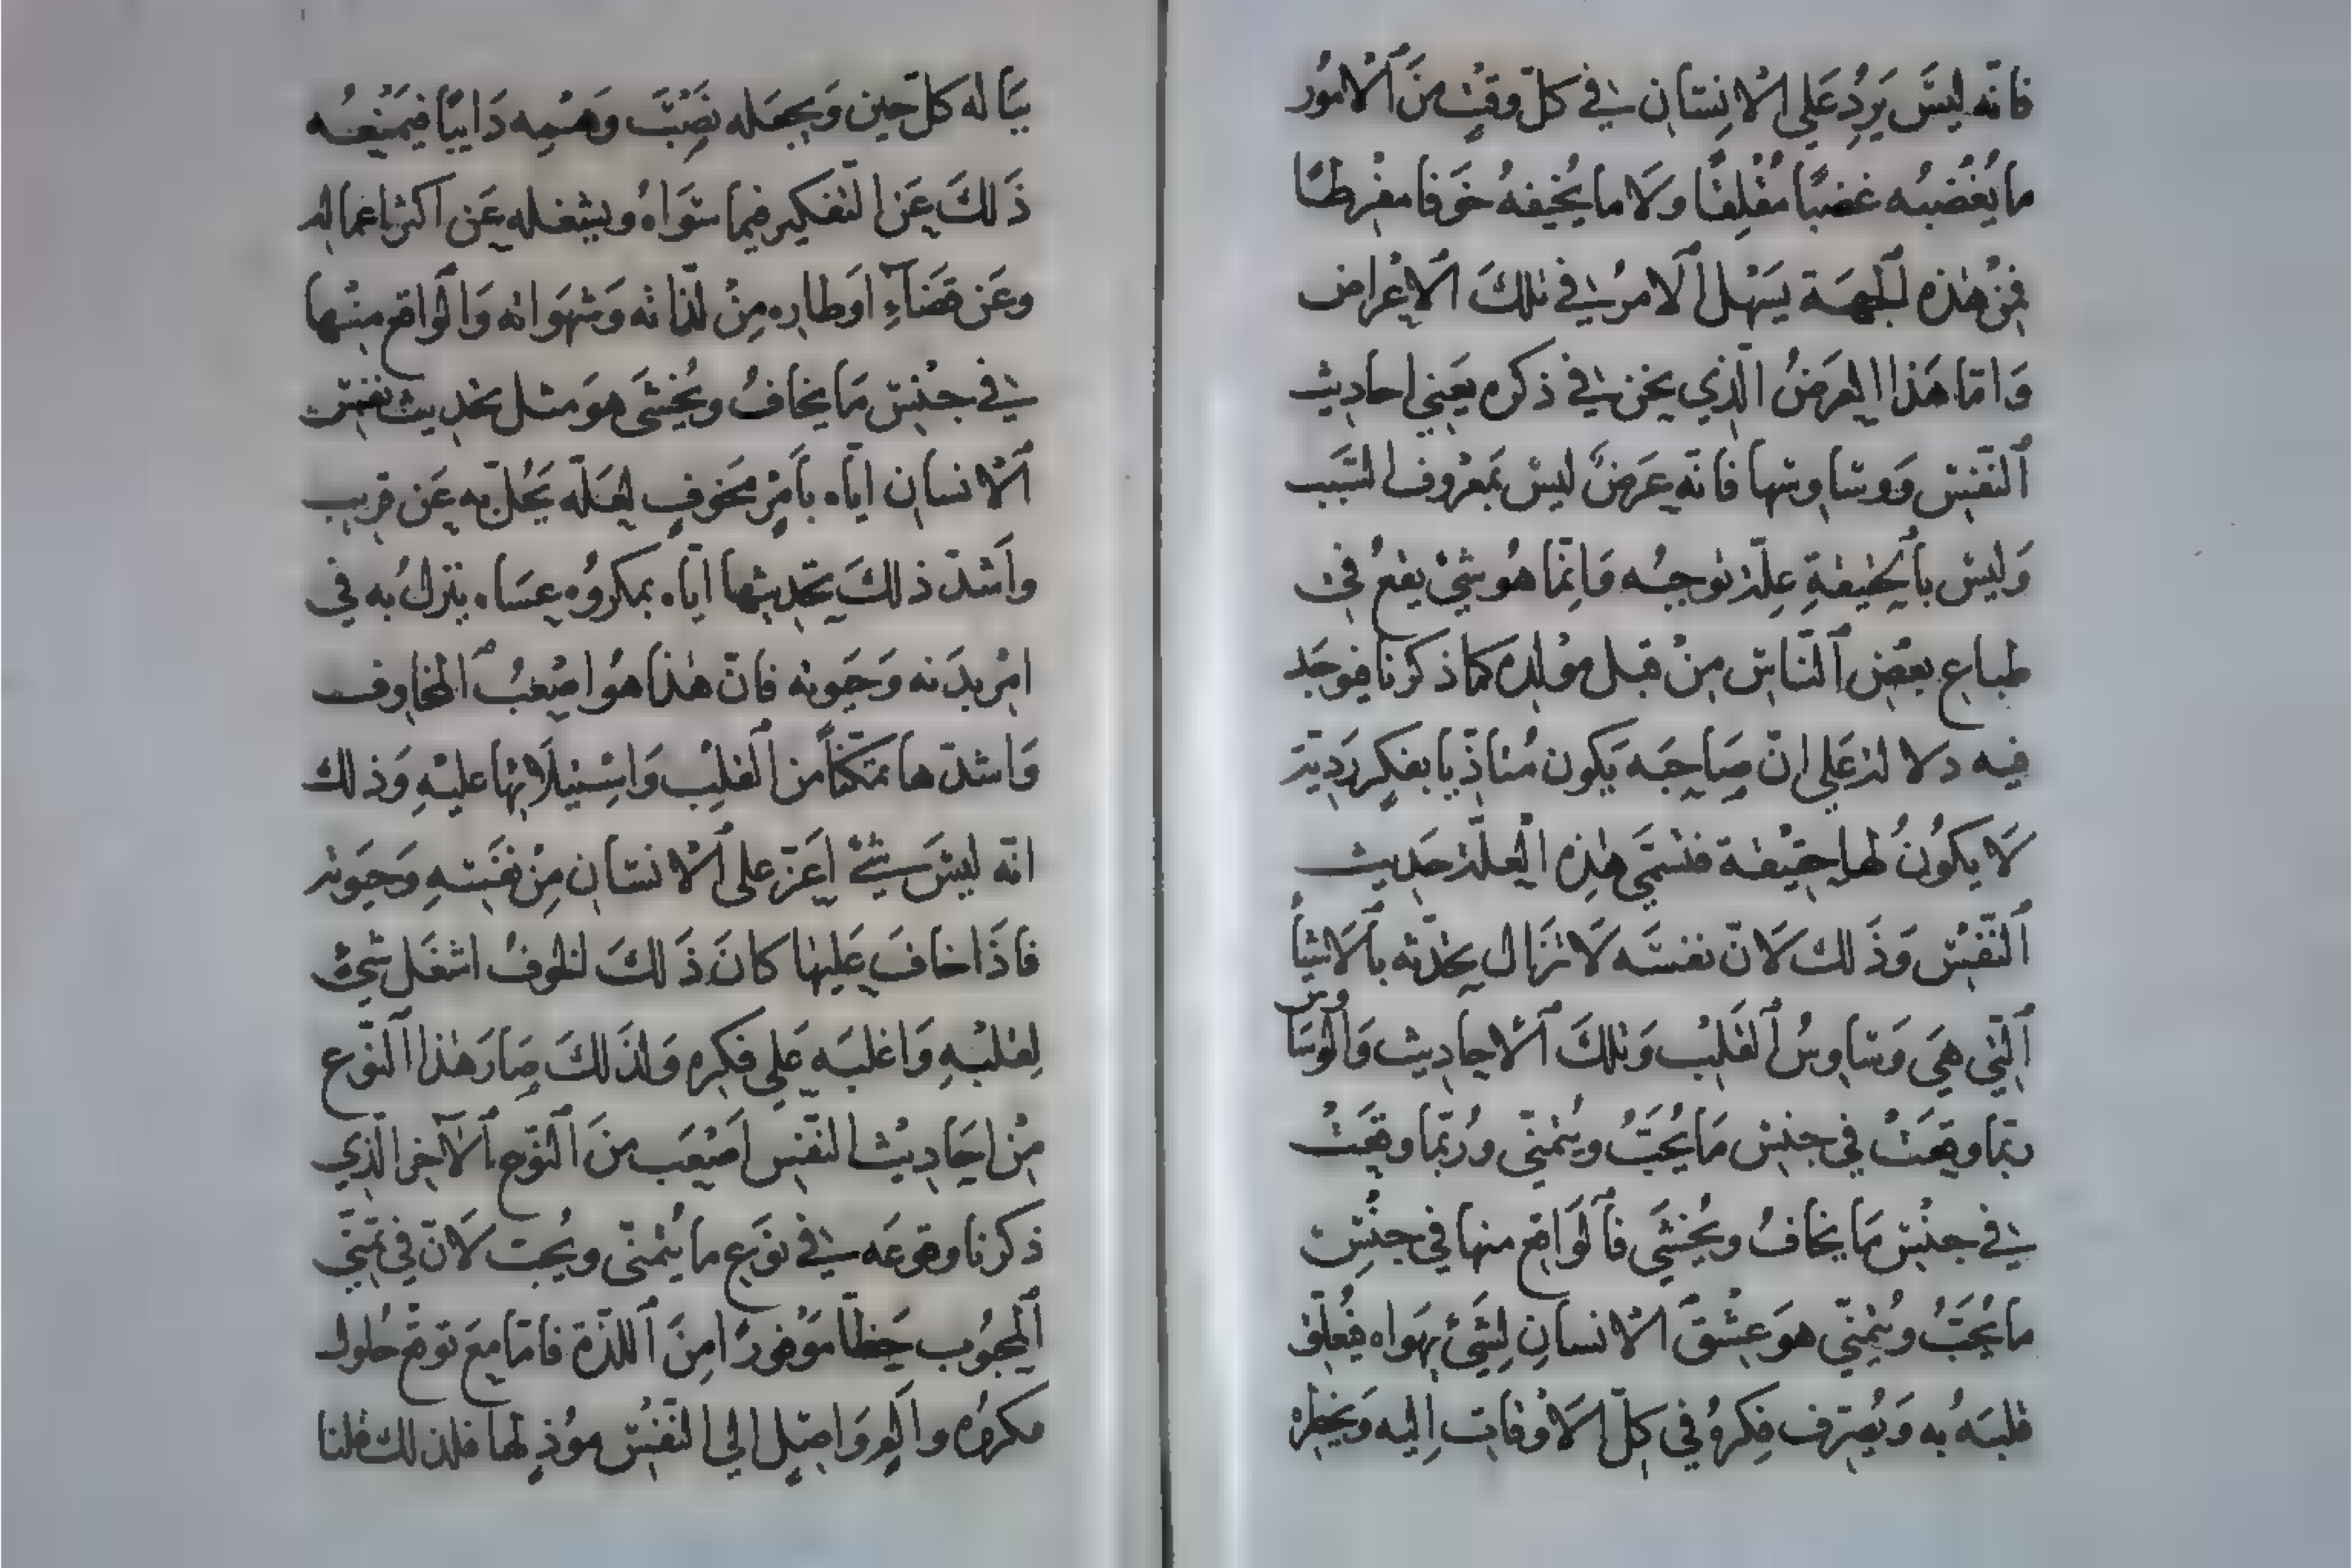 فانّه ليسَ يَرِدُ عَلى الانسَان في كلّ وقتٍ منَ الاُمُور
ما يُغْضبُه غضبًا مُقْلِقًا وَلَا ما يُخيفهُ خَوفا مفْرطًا
فمنْ هٰذه الجهَة يَسْهل الامرُ في تلكَ الاعْراض
وَامّا هَذا العرَضُ الّذي نحن في ذكره يعَني احاديث
النّفس وَوسَاوسها فانّه عَرَضٌ ليسَ بمَعْروف السّبَب
وَليس بالحقيقةِ علّة توجبُه وَانّما هُو شيْ يقعُ في
طباع بعْض النّاس منْ قبل موْلده كما ذكرنا فيوجَد
فيه دلالة عَلى انّ صَاحبَه يَكون مُتاذّيا بفكر رَديّة
لَا يكوُنُ لها حقيْقة فتسْمَّى هٰذِه العلّة حَديث
النّفْس وَذَ لك لانّ نفسَه لَا تزَال تحدّثه بالاشيَأ
الّتي هيَ وَسَاوسُ القَلْب وَتلكَ الاحاديث وَالوسَاوس
ربّما وقعَتْ في جنس مَا يُحَبُّ ويُتمنّى ورُبّما وقعَتْ
في جنْس مَا يخافُ ويُخْشَى فالوَاقع منها في جنْس
ما يُحَبُّ ويُتمنّى هوَ عشْقَ الانسانِ لِشَيْ يهَواه فيُعلّق
قلبَهُ به وَيُصَرف فِكرهُ في كلّ الاوْقات اِليه وَيخطرهُ
بَباله كلّ حين وَيجعَله نصْبَ وَهْمِه دَايبًا فيَمْنعُه
ذَ لكَ عَن التفكير فيما سوَاهُ ويشغله عَن اكثر اعماله
وعَن قضَآءِ اوَطاره مِنْ لذّاته وَشهَوَاته وَالواقع منْها
في جنْس مَا يخافُ ويُخْشَى هوَ مثل تحْديث نفس
الانسان ايّاه بأمْرٍ مَخوفٍ لعَلّه يَحُلّ به عَن قريب
وأشدّ ذ لكَ تحديثها ايّاه بمكرُوه عسَاه ينزلُ به في
امْر بدَنه وَحَيوته فانّ هٰذا هوُ اصْعبُ المخاوف
وَاشدّها تمَكّناً من القلْب وَاسْتيلَائها عليْهِ وَذ لك
انّه ليسَ شيْ اعَزّ على الانسَان مِنْ نفَسهِ وَحَيَوته
فاذَا خافَ عَليهٰا كانَ ذَ لكَ الخوفُ اشغَل شيْ
لقلبْهِ وَاغلبَه عَلى فكره وَلذَ لكَ صَارَ هٰذا النّوع
مْن احَاديْث النّفس اَصْعَب منَ النّوع الاٰخر الّذي
ذكرنا وقوعَه في نوَع ما يُتمنّى ويُحبّ لانّ في تمنّي
المحبُوب حَظّاً موْفورًا مِنَ اللذّة فامّا معَ توقّع حُلول
مكرُوه والمٍ وَاصِلٍ الى النّفْس موُذٍ لها فلذ لك قلنا